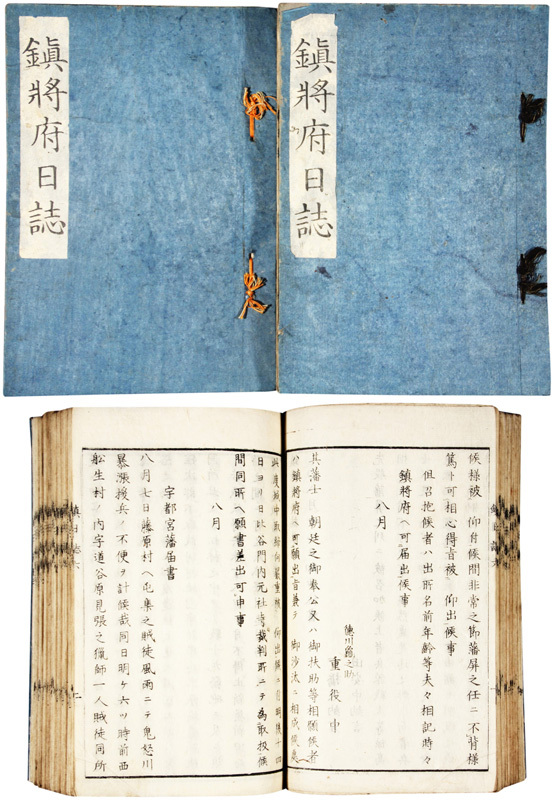 鎭將府日誌
鎭將府日誌
候樣被 仰付候間非常之節藩屏之任ニ不背樣
篤ト可相心得旨被 仰出候事
但召抱候者ハ出所名前年齡等夫々相記時々
鎭將府ヘ可届出候事
八月
德川龜之助
重役中
其藩士 朝廷之御奉公又ハ御扶助等相願候者
鎭將府ヘ可願出
御沙汰ニ相成候
日ヨリ四日
谷門内元社寺裁判所ニテ爲取扱候
間同所ヘ願書差出可申事
八月
宇都宮藩届書
八月七日藤原村ヘ屯集之賊徒風雨ニテ鬼怒川
暴漲援兵ノ不便ヲ計候哉同日明ケ六ツ時前西
舩生村ノ内字道谷原見張之獵師一人賊徒同所